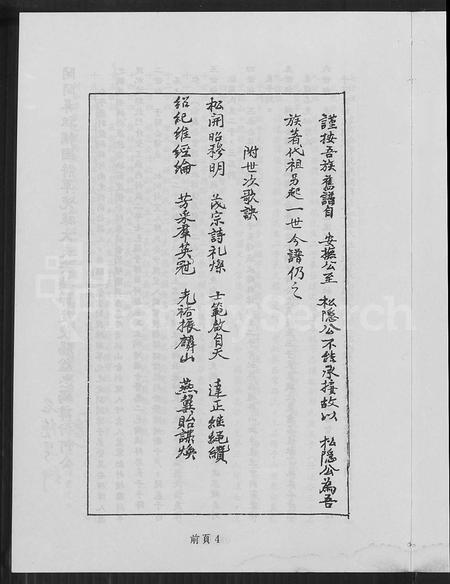 謹按吾族舊譜自 安撫公至 松隱公不能承接故以 松隱公為吾
族著代祖另起一世今譜仍之
附世次歌訣
松開昭穆明 茂宗詩礼燦 士範啟自天 達正繼繩纘
紹紀維經綸 芳采羣英冠 光裕振麟山 燕翼貽謀煥
前頁4